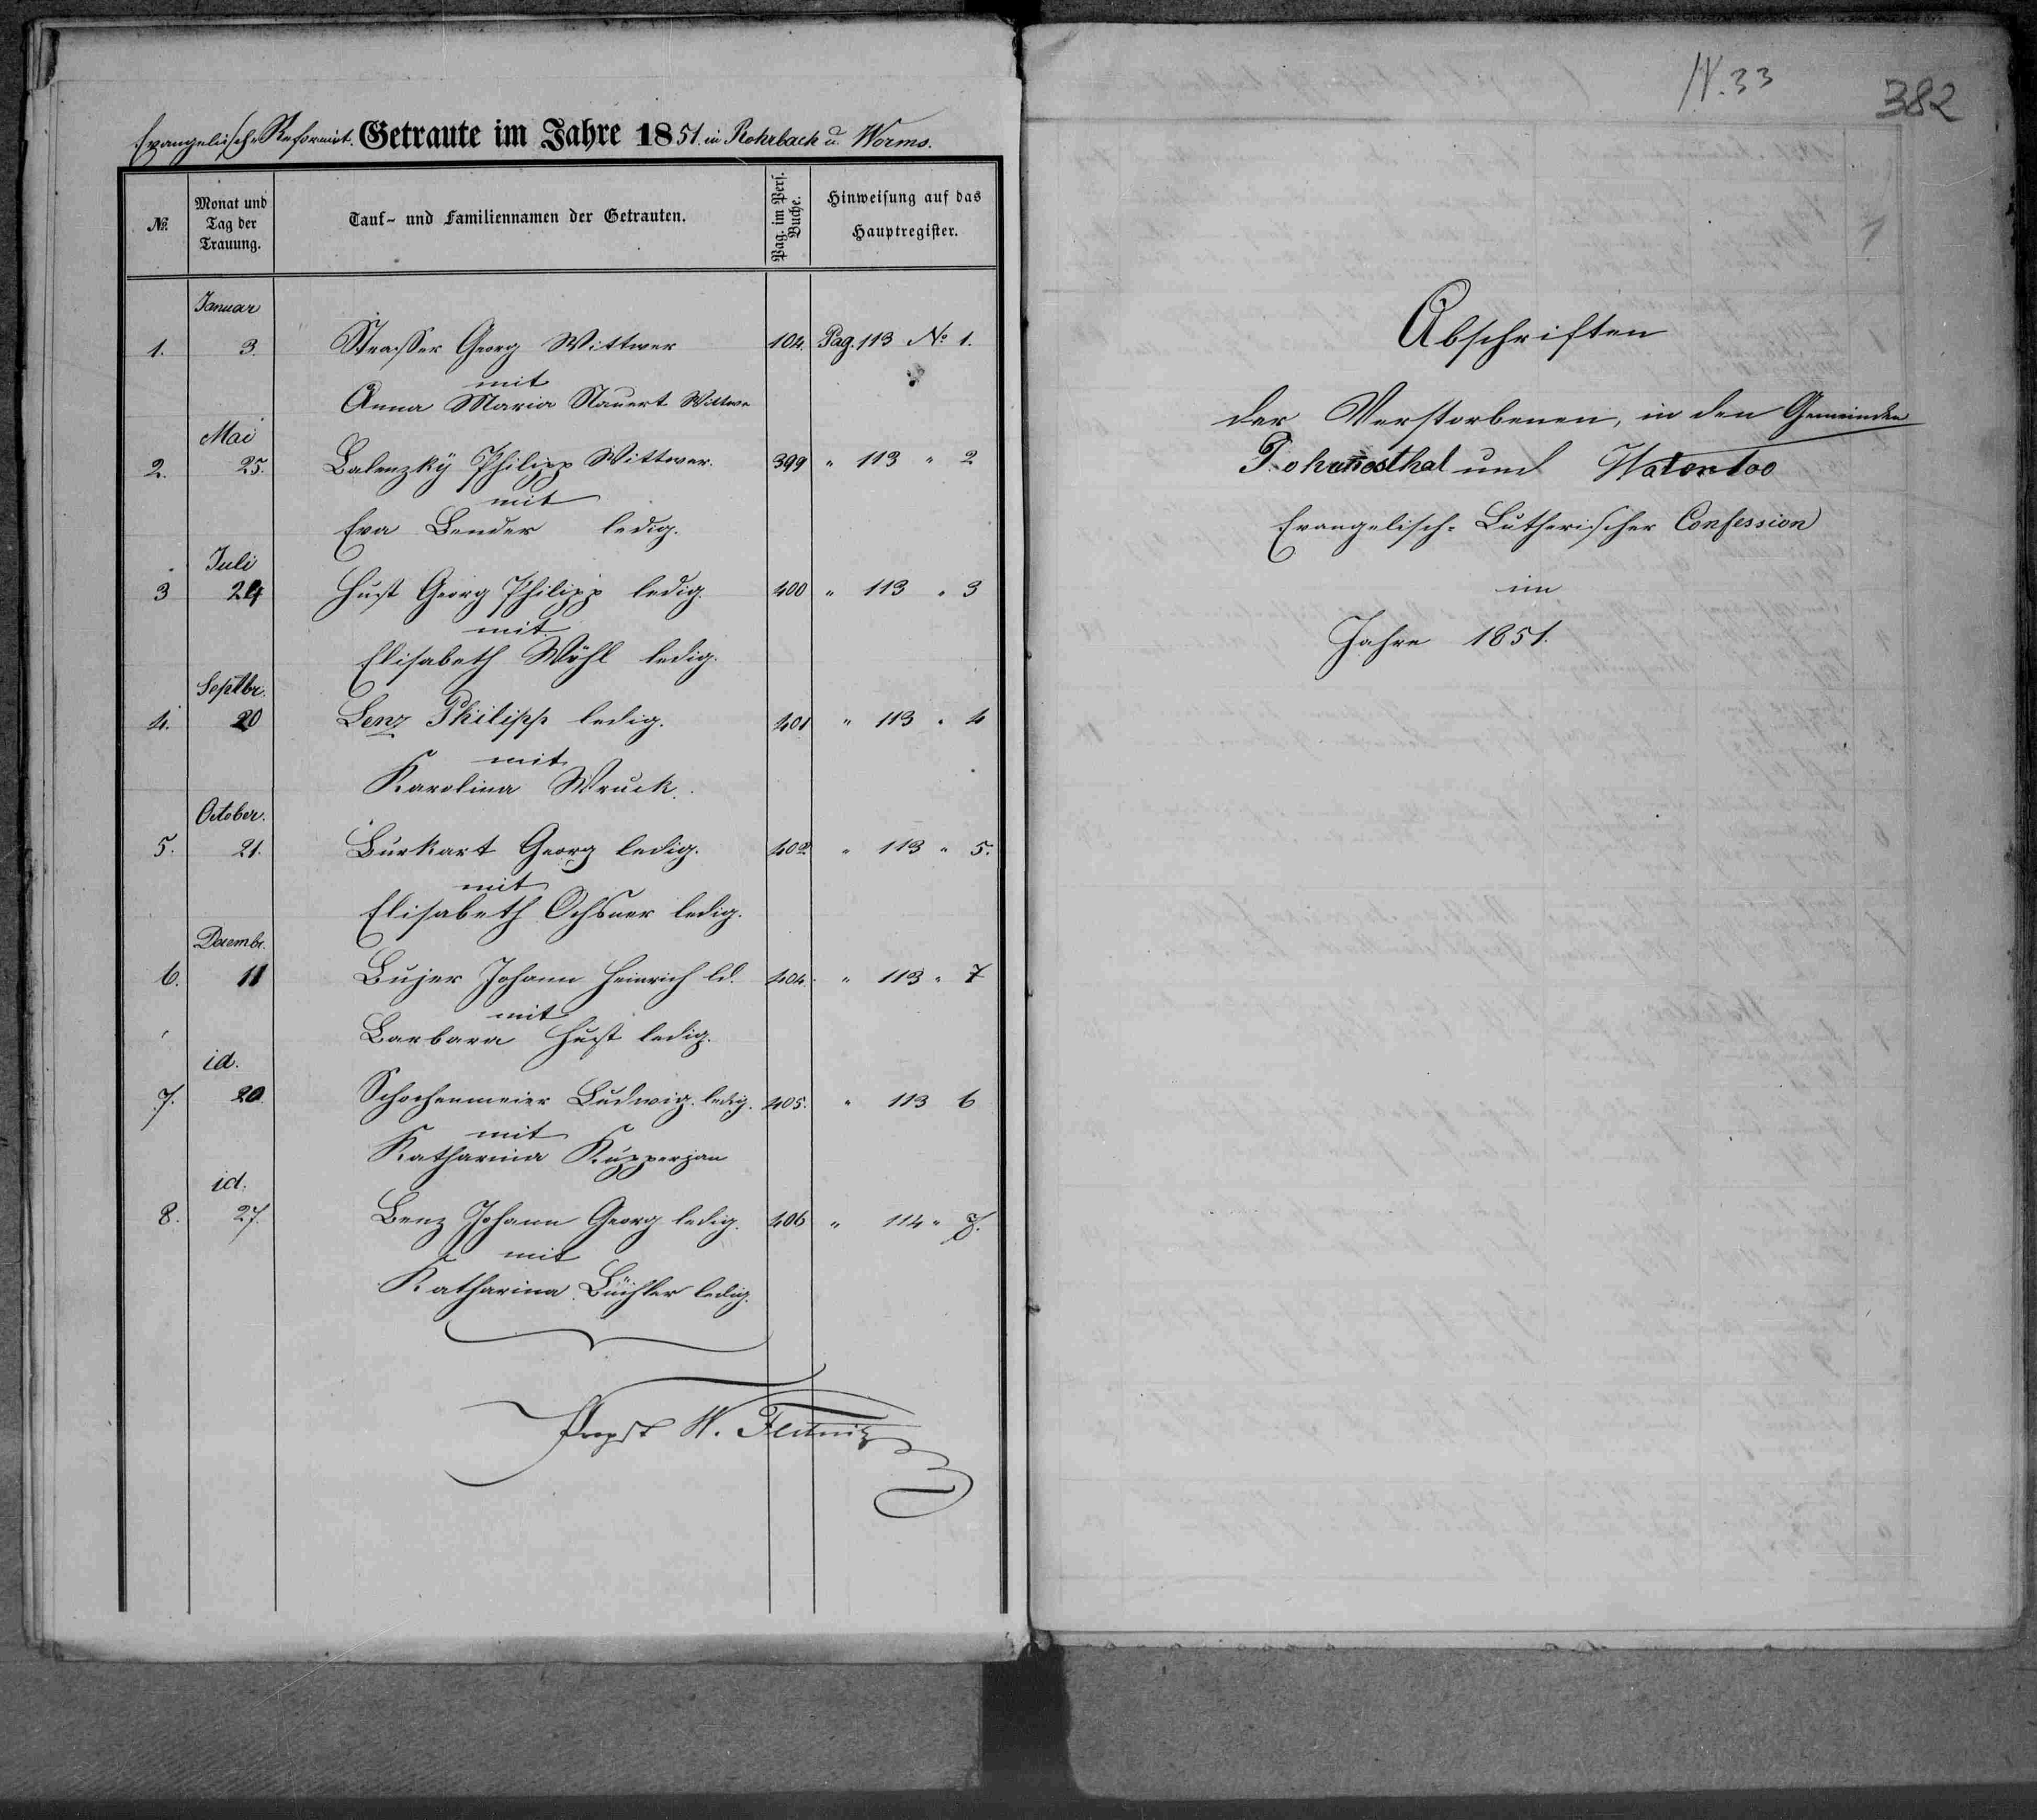 Evangelisch-Reformirt. Getraute im Jahre 1851. in Rohrbach u. Worms.
No. Monat und Tag der Trauung. Tauf- und Familiennamen der Getrauten. Pag. im Pers. Buche. Hinweisung auf das Hauptregister.
Januar
1. 3. Strasser Georg Wittwer 104. Pag. 113 No 1.
mit
Anna Maria Nauert Wittwe
Mai
2. 25. Balenzky Philipp Wittwer. 399 " 113 " 2
mit
Eva Bender ledig.
Juli
3 24 Hust Georg Philipp ledig. 400 " 113 " 3
mit
Elisabeth Wöhl ledig.
Septbr.
4. 20 Lenz Philipp ledig. 401 " 113 " 4
mit
Karolina Wruck.
October.
5. 21. Burkart Georg ledig. 402 " 113 " 5.
mit
Elisabeth Ochsner ledig.
Decembr.
6. 11 Bujer Johann Heinrich ld. 404. " 113 " 7
mit
Barbara Hust ledig.
id.
7. 20. Schochenmeier Ludwig. ledig. 405. " 113 6
mit
Katharina Kupperjan
id.
8. 27. Benz Johann Georg ledig. 406 " 114 " 8.
mit
Katharina Büchler ledig.
Propst W. Fletnitz
N. 33
382
1
Abschriften
der Verstorbenen, in den Gemeinden
Johannesthal und Waterloo
Evangelisch-Lutherischer Confession
im
Jahre 1851.